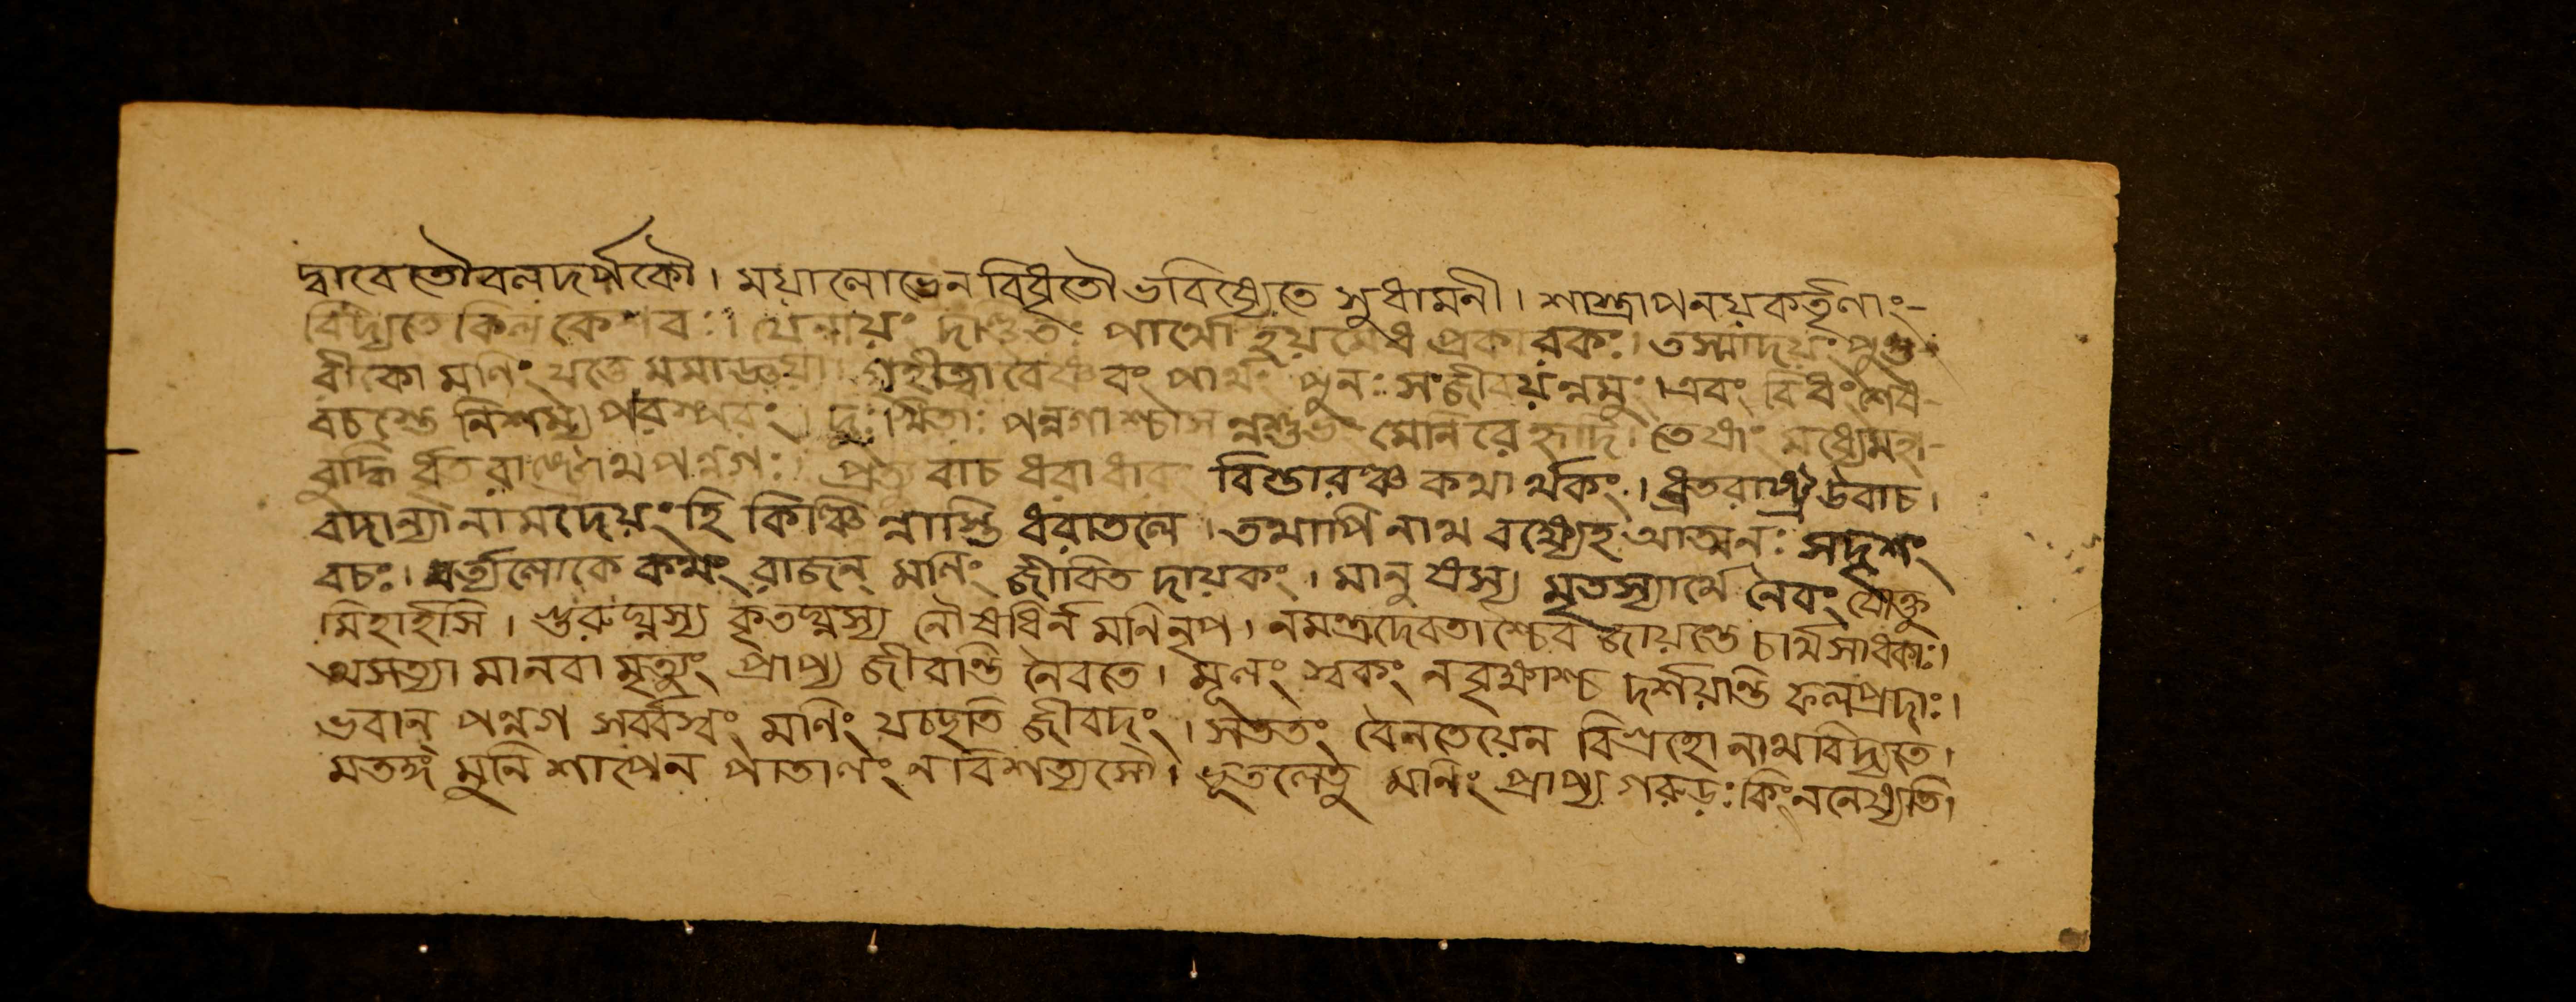 দ্বাবেতৌ বলদর্পকৌ। ময়ালোভেন বিধৃতৌ ভবিষ্যেতে সুধামনী। শাস্ত্রাপনয়কর্তৃণাং-
বিদ্যতে কিল কেশবঃ। যেনায়ং দণ্ডিতঃ পার্থো হয়মেধ প্রকারকঃ। তস্মাদয়ং পুণ্ড
রীকো মণিং যতে মমাজ্ঞয়া। গৃহীত্বা বৈষ্ণবং পার্থং পুনঃ সংজীবয়ন্নমুং। এবং বিধং শেষ-
বচস্তে নিশম্য পরস্পরং। দুঃখিতাঃ পন্নগাশ্চাসন্নশুভং মেনিরে হৃদি। তেষাং মধ্যেমহা-
বুদ্ধি র্ধৃতরাষ্ট্রোথপন্নগঃ। প্রত্যুবাচ ধরাধারং বিস্তারঞ্চ কথার্থকং। ধৃতরাষ্ট্র উবাচ।
বদান্যানামদেয়ং হি কিঞ্চিন্নাস্তি ধরাতলে। তথাপি নাথ বক্ষ্যেহ আত্মনঃ সদৃশং
বচঃ। মর্ত্যলোকে কথং রাজন্ মণিং জীবিত দায়কং। মানুষস্য মৃতস্যার্থে নৈবং বোক্তু
মিহার্হসি। গুরুঘ্নস্য কৃতঘ্নস্য নৌষধির্ন মনির্নৃপ। নমন্ত্রদেবতাশ্চৈব জায়ন্তে চার্থসাধকাঃ।
অসত্যা মানবা মৃত্যুং প্রাপ্য জীবন্তি নৈবতে। মূলং শ্বকং নবৃক্ষাশ্চ দর্শয়ন্তি ফলপ্রদাঃ।
ভবান্ পন্নগ সর্ব্বস্বং মণিং যচ্ছতি জীবদং। সততং বৈনতেয়েন বিগ্রহো নাথবিদ্যতে।
মতঙ্গ মুনি শাপেন পাতালং নবিশত্যসৌ। ভূতলেতু মনিং প্রাপ্য গরুড়ঃ কিং ননেষ্যতি।